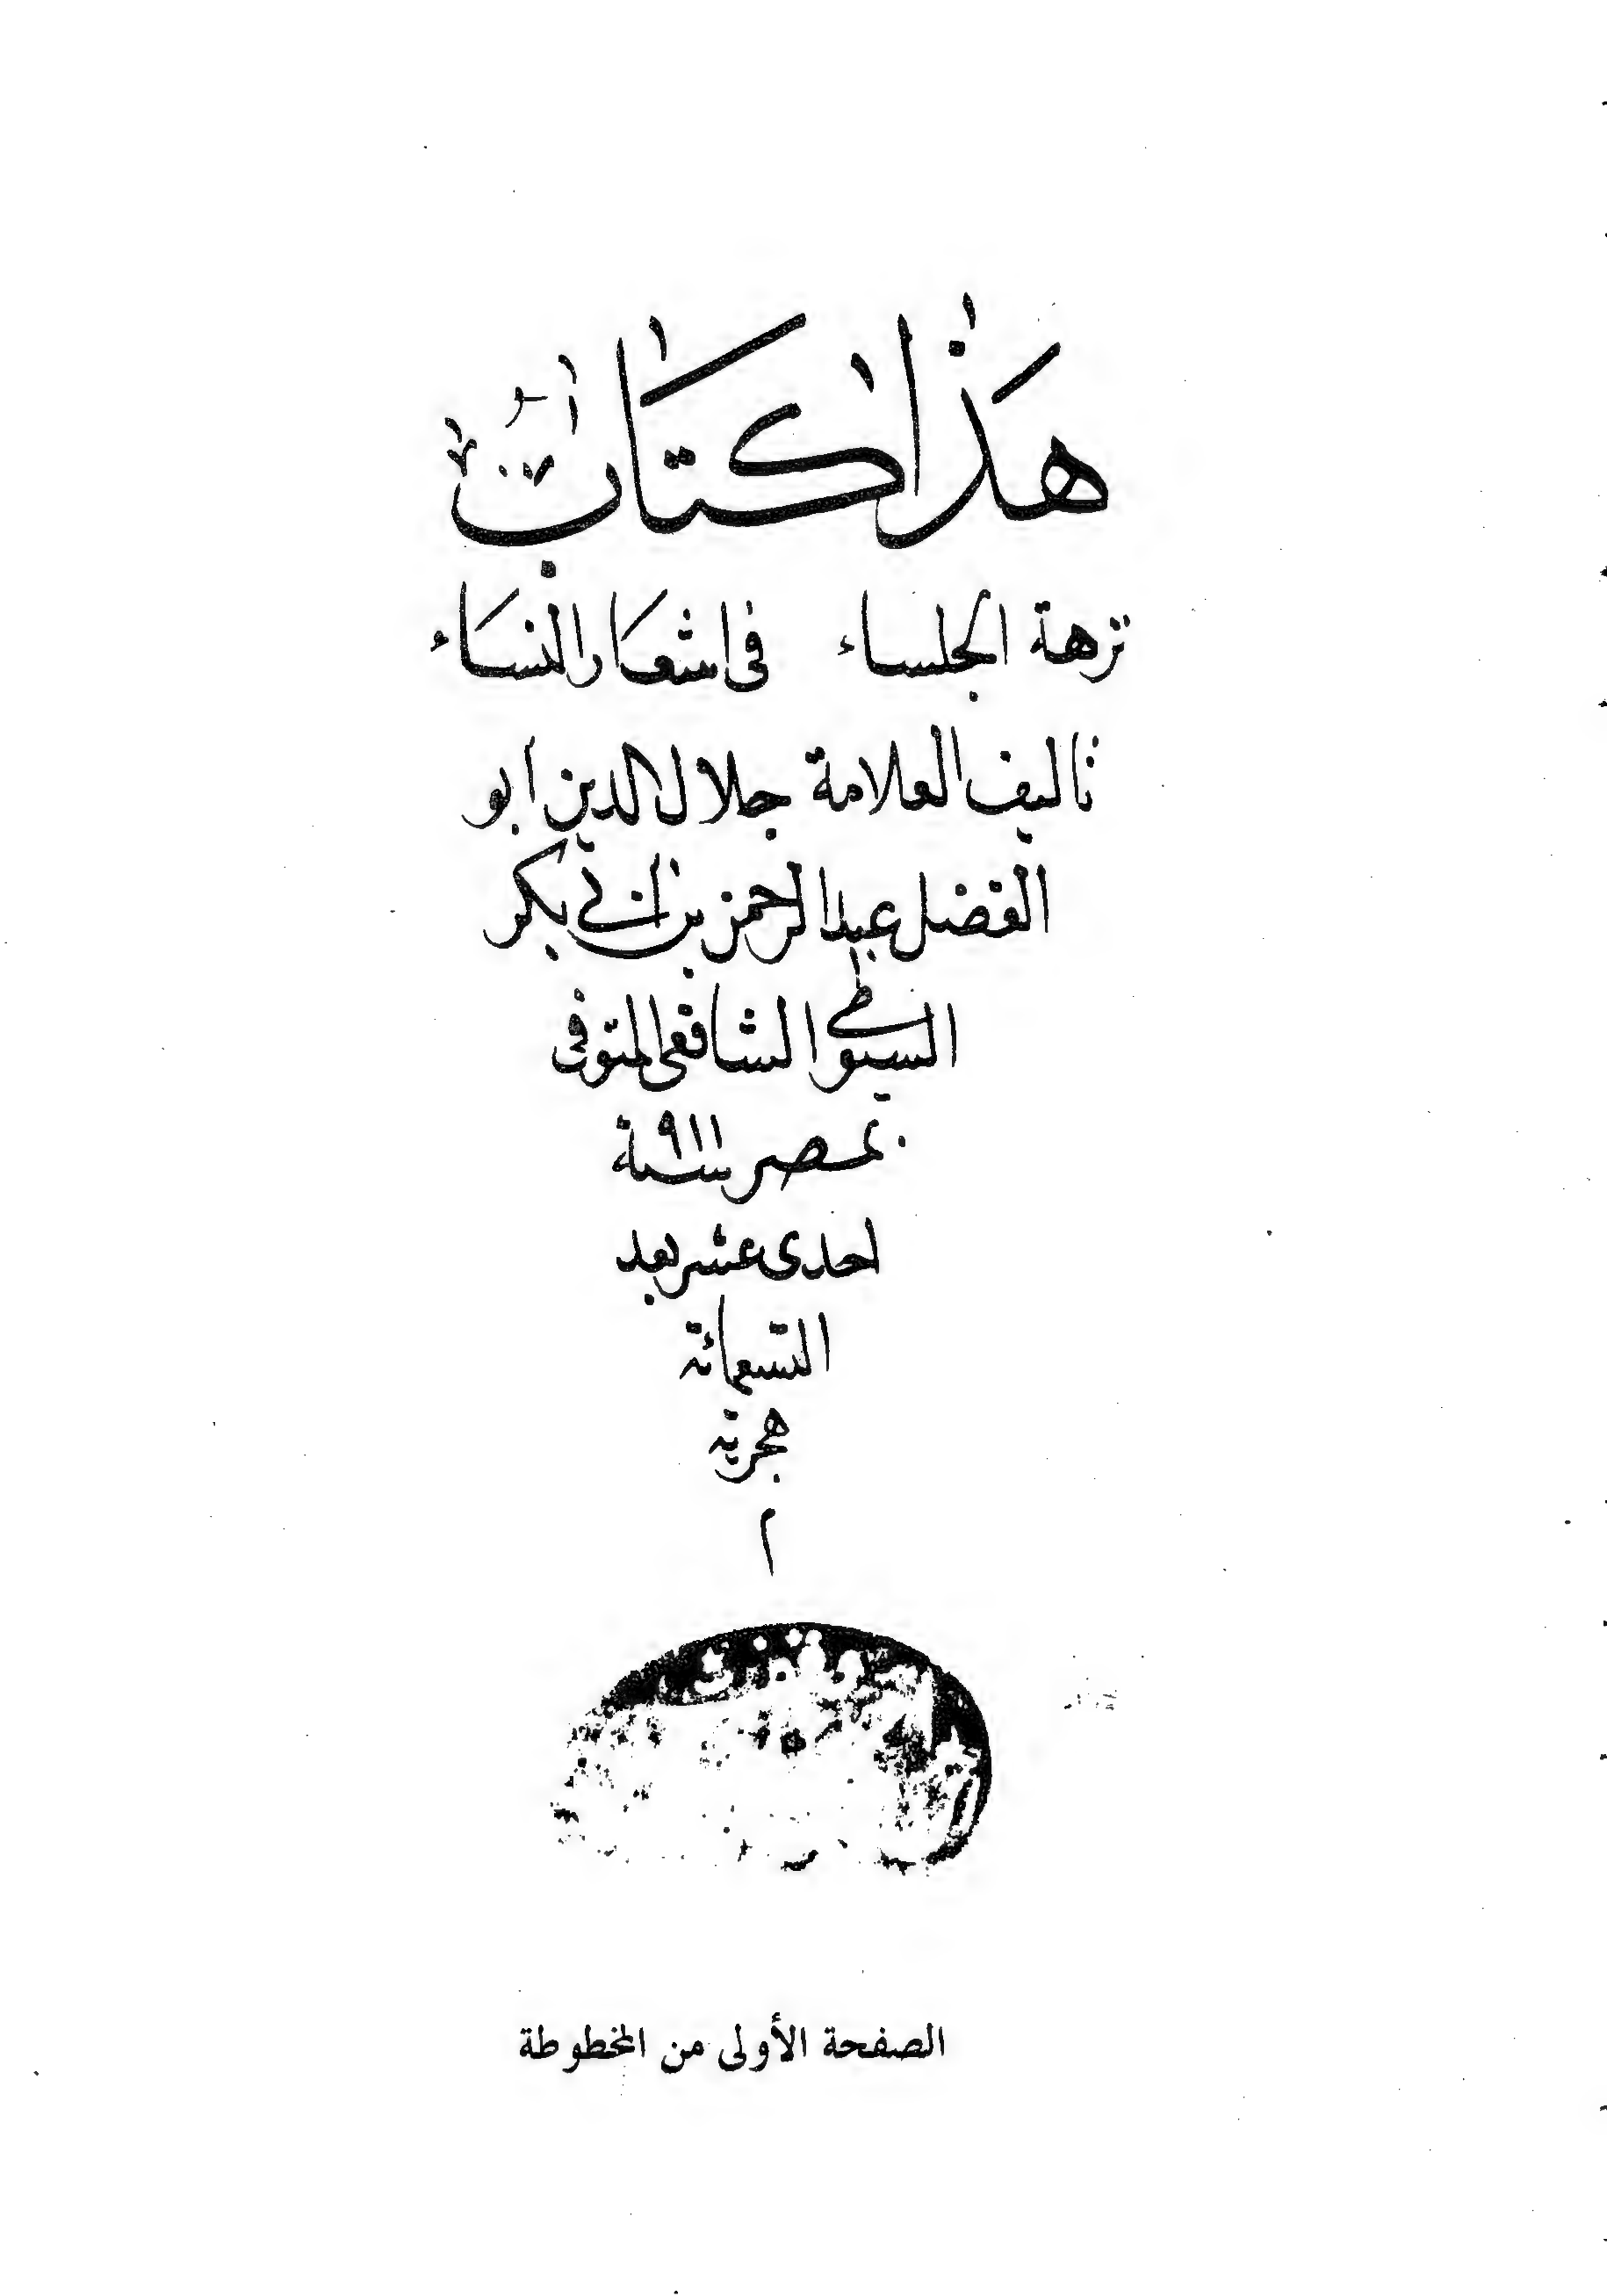 هَذَا كتَابُ
نزهة الجلساء في اشعار النساء
تاليف العلامة جلال الدين ابو
الفضل عبد الرحمن بن ابي بكر
السيوطي الشافعي المتوفى
بمصر سنة ٩١١
احدى عشر بعد
التسعمائة
هجرية
م
الصفحة الأولى من المخطوطة